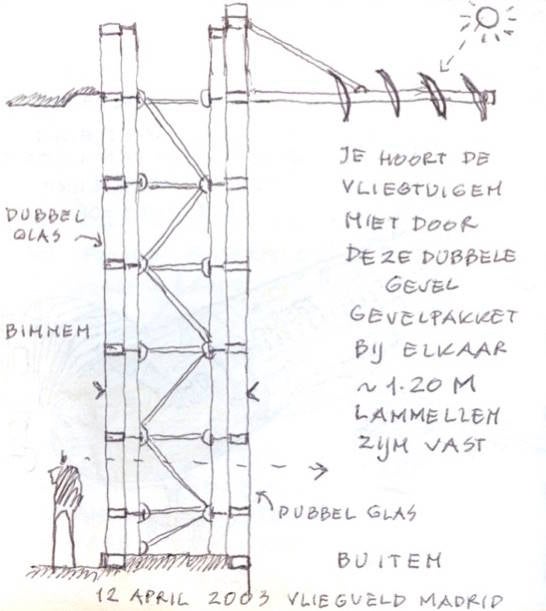 JE HOORT DE
VLIEGTUIGEN
NIET DOOR
DEZE DUBBELE
GEVEL
GEVELPAKKET
BIJ ELKAAR
~ 1.20 M
LAMMELLEN
ZIJN VAST
DUBBEL
GLAS
BINNEN
DUBBEL GLAS
BUITEN
12 APRIL 2003 VLIEGVELD MADRID